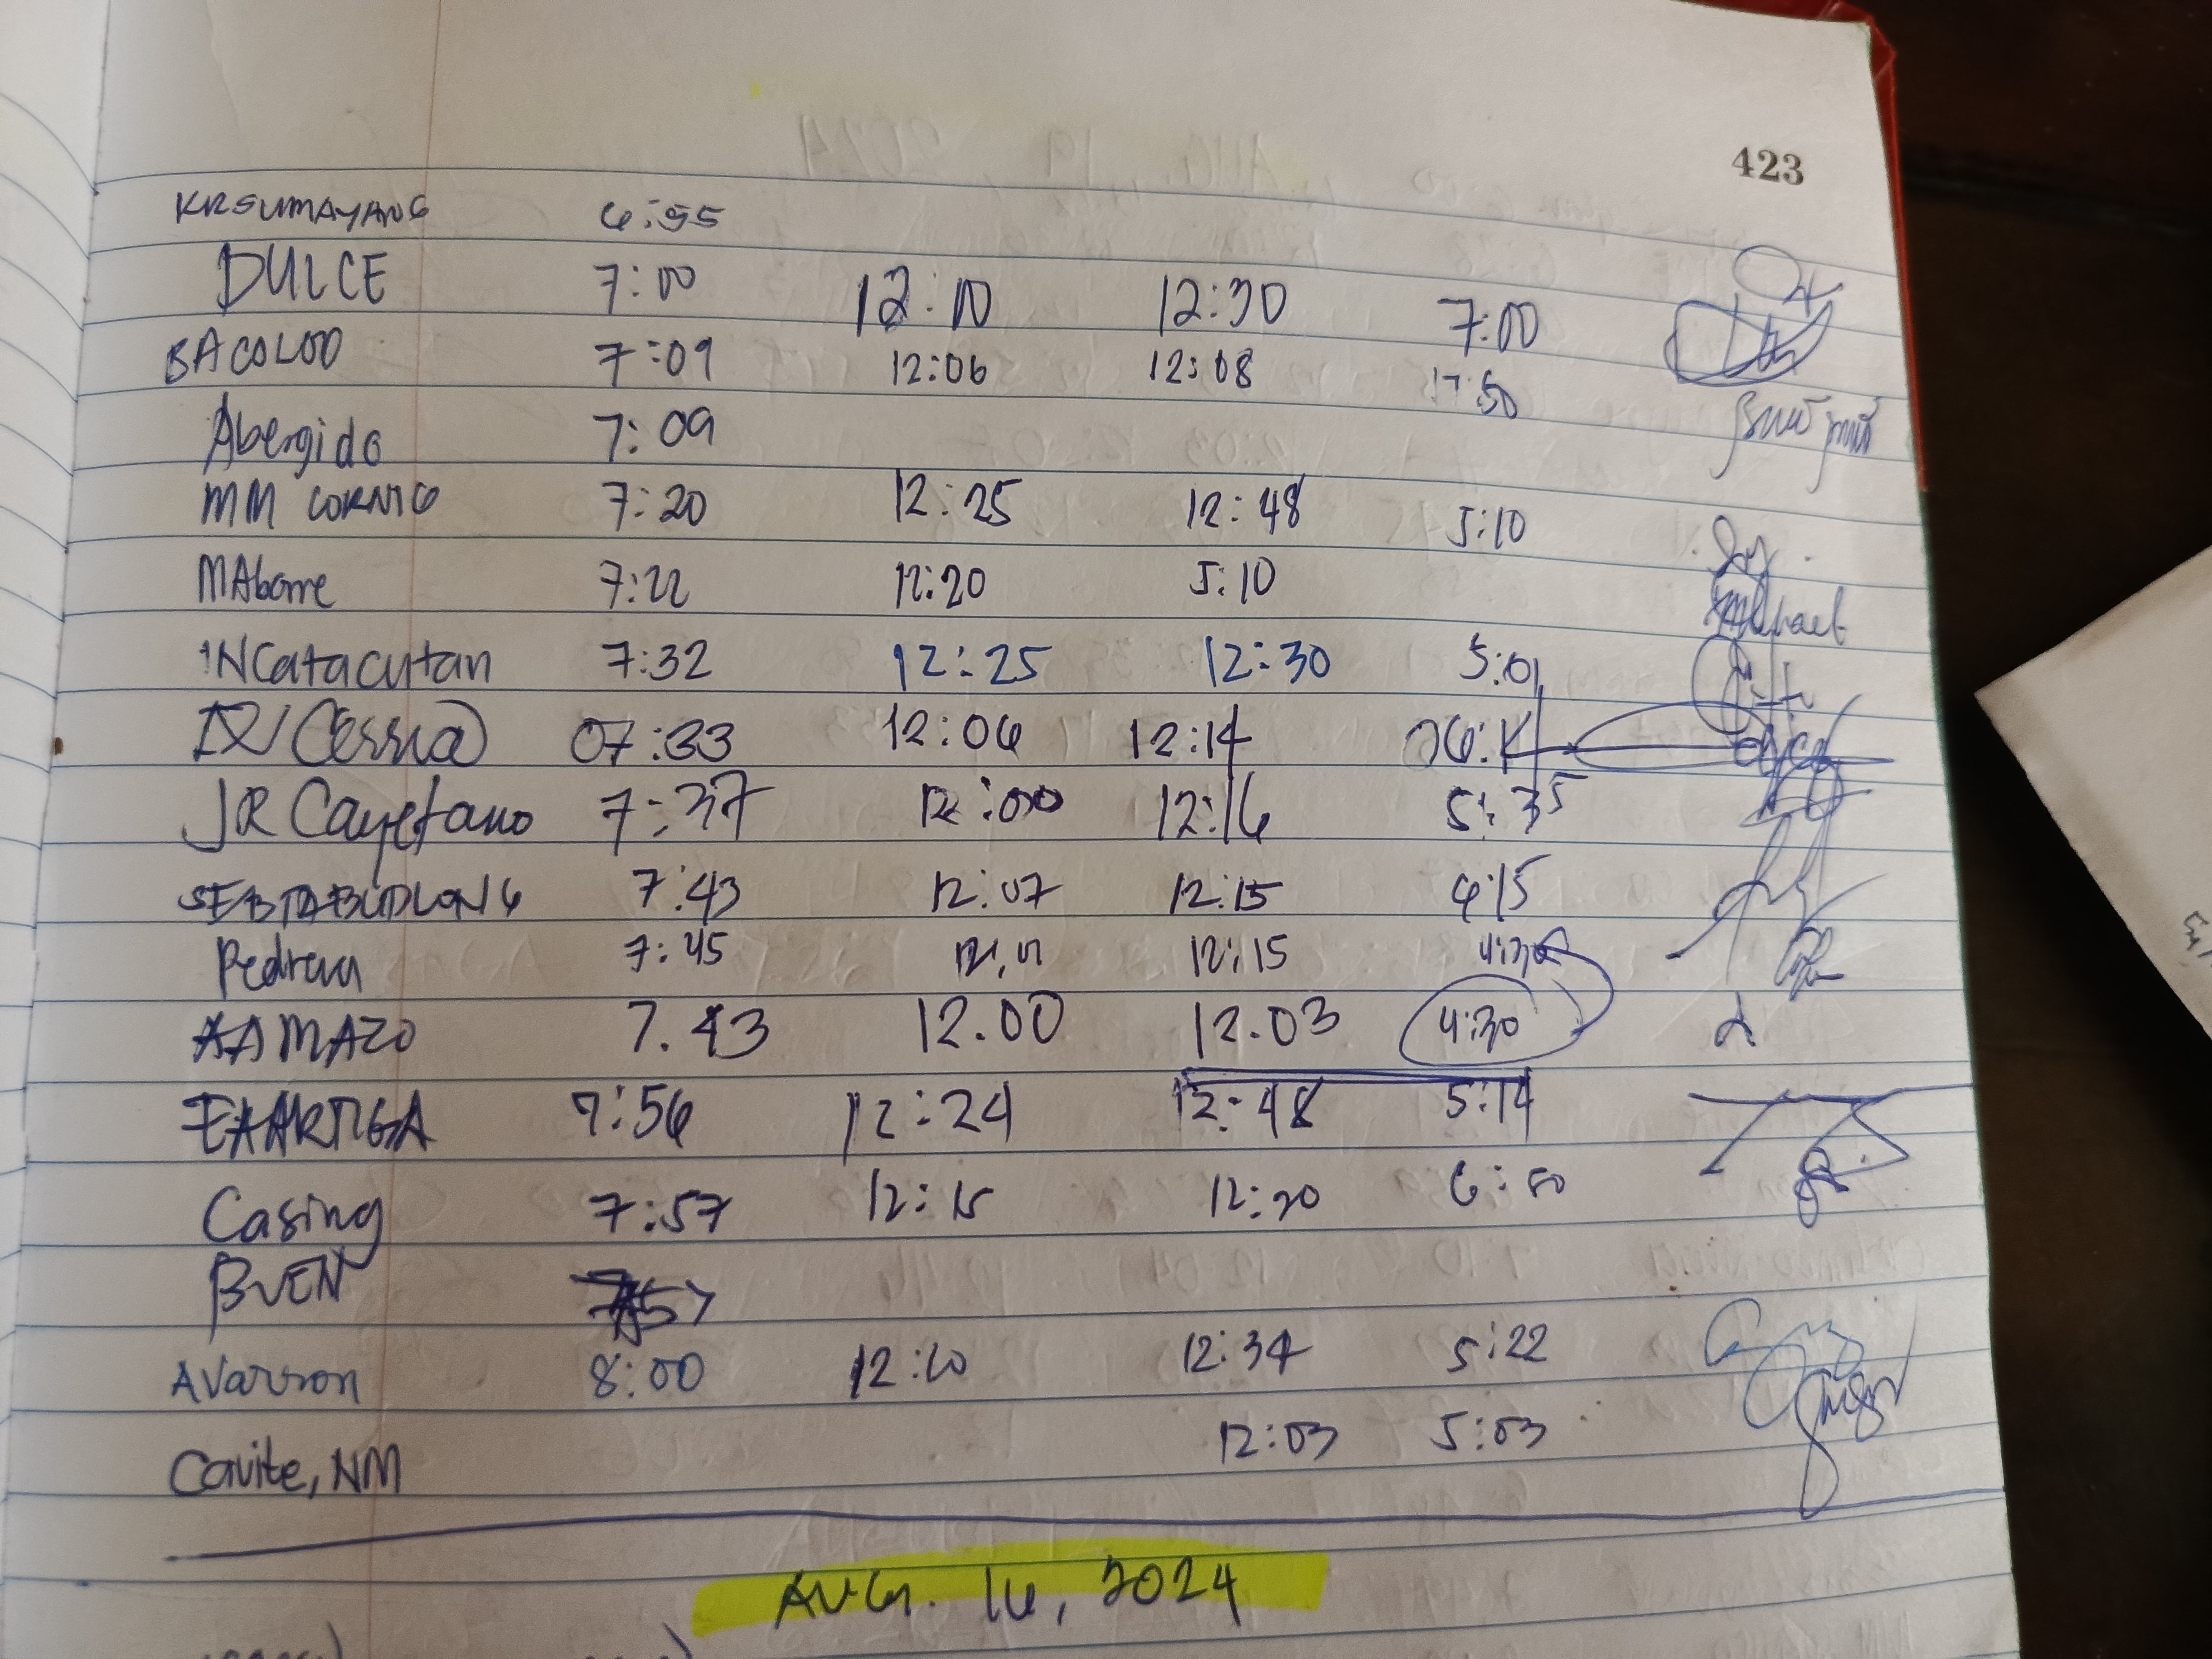 423
KRSUMAYANG 6:55
DULCE 7:00 12:10 12:30 7:00
BACOLOD 7:09 12:06 12:08 17:50
Abergido 7:09
MM CORNIO 7:20 12:25 12:48 5:10
MAbome 7:22 12:20 5:10
Michael
INCatacutan 7:32 12:25 12:30 5:01
07:33 12:06 12:14 06:14
JR Cayetano 7:37 12:00 12:16 5:35
7:43 12:07 12:15 6:15
Pedrera 7:45 12:15 4:30
AAMAZO 7.43 12.00 12.03 4:30
EAARTIGA 7:56 12:24 12:48 5:14
Casing 7:57 12:15 12:20 6:50
BUEN 757
AVarron 8:00 12:20 12:34 5:22
Cavite, NM 12:03 5:03
AUG. 16, 2024